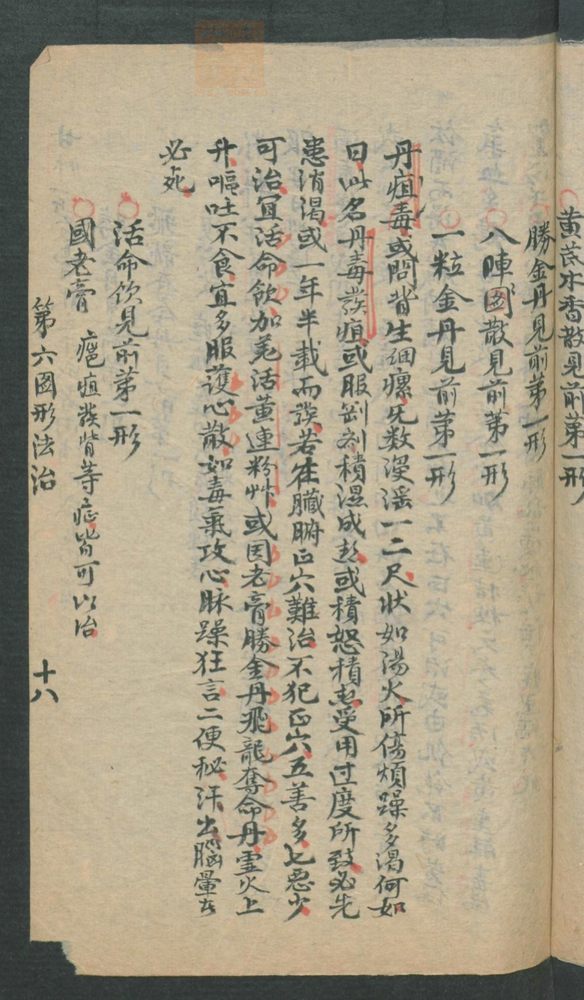 黄芪木香散見前第一形
勝金丹見前第一形
八陣圖散見前第一形
一粒金丹見前第一形
丹疽毒或問背生細瘰無数漫滛一二尺状如湯火所傷煩躁多渴何如
曰此名丹毒發疽或服剄剂積温成热或積怒積恚受用过度所致必先
患消渴或一年半載而發若在臟腑正穴難治不犯正穴五善多七悪少
可治冝活命飲加羌活黄連粉艸或国老膏勝金丹飛龍奪命丹霊火上
升嘔吐不食宜多服護心散如毒氣攻心脉躁狂言二便秘汗出腦暈者
必死
活命饮見前第一形
國老膏 癰疽發背等症皆可以治
第六圖形法治 十八